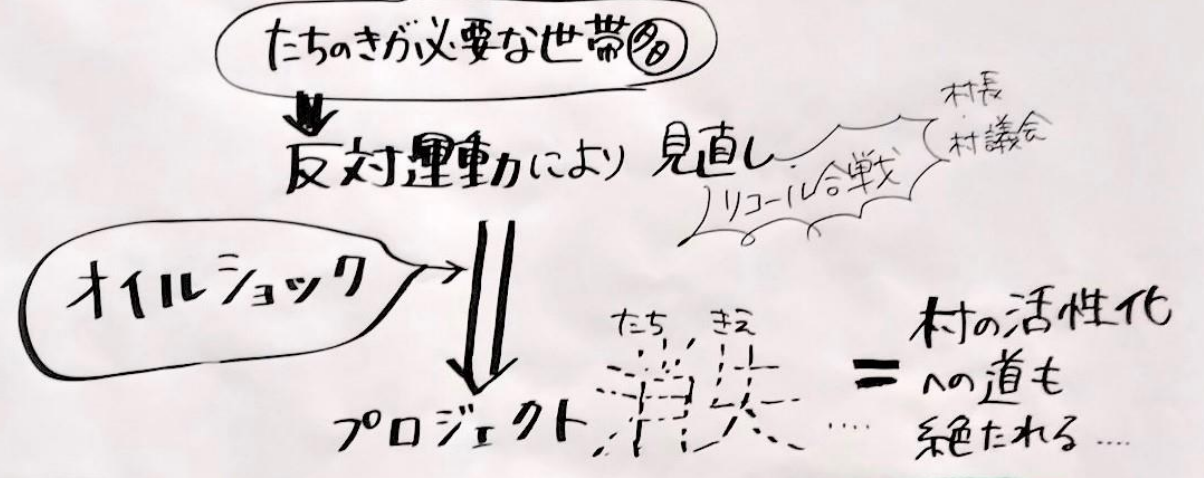 たちのきが必要な世帯多
反対運動により 見直し
リコール合戦
村長
村議会
オイルショック
たち きえ
プロジェクト 消失 ....
=
村の活性化
への道も
絶たれる....